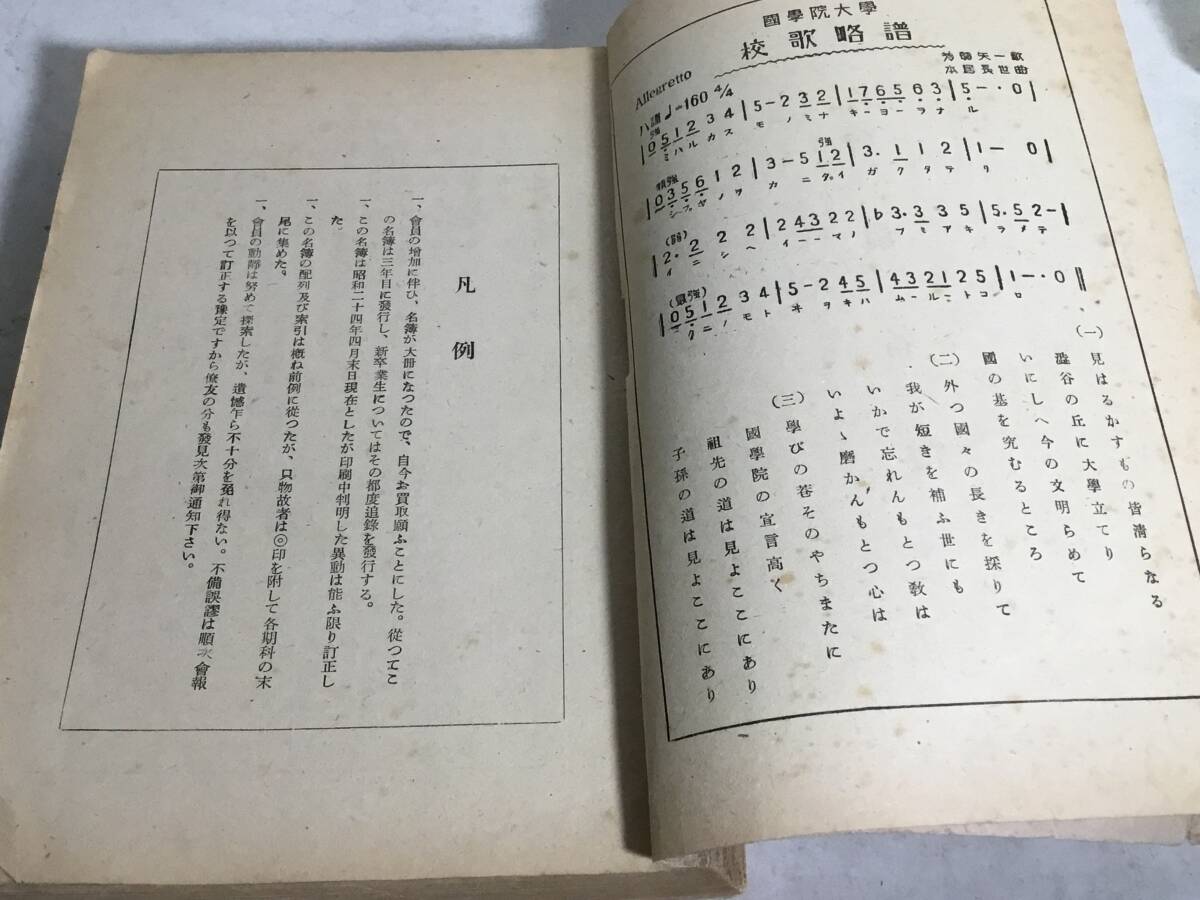 國學院大學
校歌略譜
芳賀矢一歌
本居長世曲
Allegretto
ハ調 ♩=160 4/4
強
|0 5 1 2 3 4|5 - 2 3 2|1 7 6 5 6 3|5 - · 0|
ミハルカス モノミナ キーヨーラナ ル
強
|0 3 5 6 1 2|3 - 5 1 2|3 · 1 1 2|1 - 0|
シブヤノヲ カニダイ ガクタテ リ
(弱)
|2 · 2 2 2|2 4 3 2 2|♭3 · 3 3 5|5 · 5 2 -|
イニシヘ イーーマノ フミアキ ラメテ
|0 5 1 2 3 4|5 - 2 4 5|4 3 2 1 2 5|1 - · 0‖
クニノモト ヰヲキハ ムールートコ ロ
(一)見はるかすもの皆淸らなる
澁谷の丘に大學立てり
いにしへ今の文明らめて
國の基を究むるところ
(二)外つ國々の長きを採りて
我が短きを補ふ世にも
いかで忘れんもとつ敎は
いよゝ磨かんもとつ心は
(三)學びの巷そのやちまたに
國學院の宣言高く
祖先の道は見よここにあり
子孫の道は見よここにあり
凡例
一、會員の增加に伴ひ、名簿が大冊になつたので、自今お買取願ふことにした。從つてこ
の名簿は三年目に發行し、新卒業生についてはその都度追錄を發行する。
一、この名簿は昭和二十四年四月末日現在としたが印刷中判明した異動は能ふ限り訂正し
た。
一、この名簿の配列及び索引は概ね前例に從つたが、只物故者は◎印を附して各期科の末
尾に集めた。
一、會員の動靜は努めて探索したが、遺憾乍ら不十分を免れ得ない。不備誤謬は順次會報
を以つて訂正する豫定ですから僚友の分も發見次第御通知下さい。